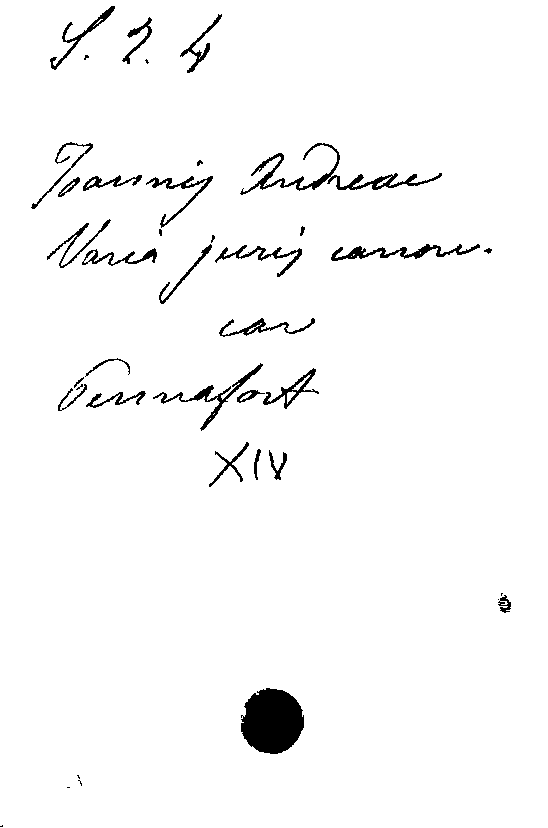 S. 2. 4
Joannis Andreae
Varia juris canon.
car
Pennafort
XIV